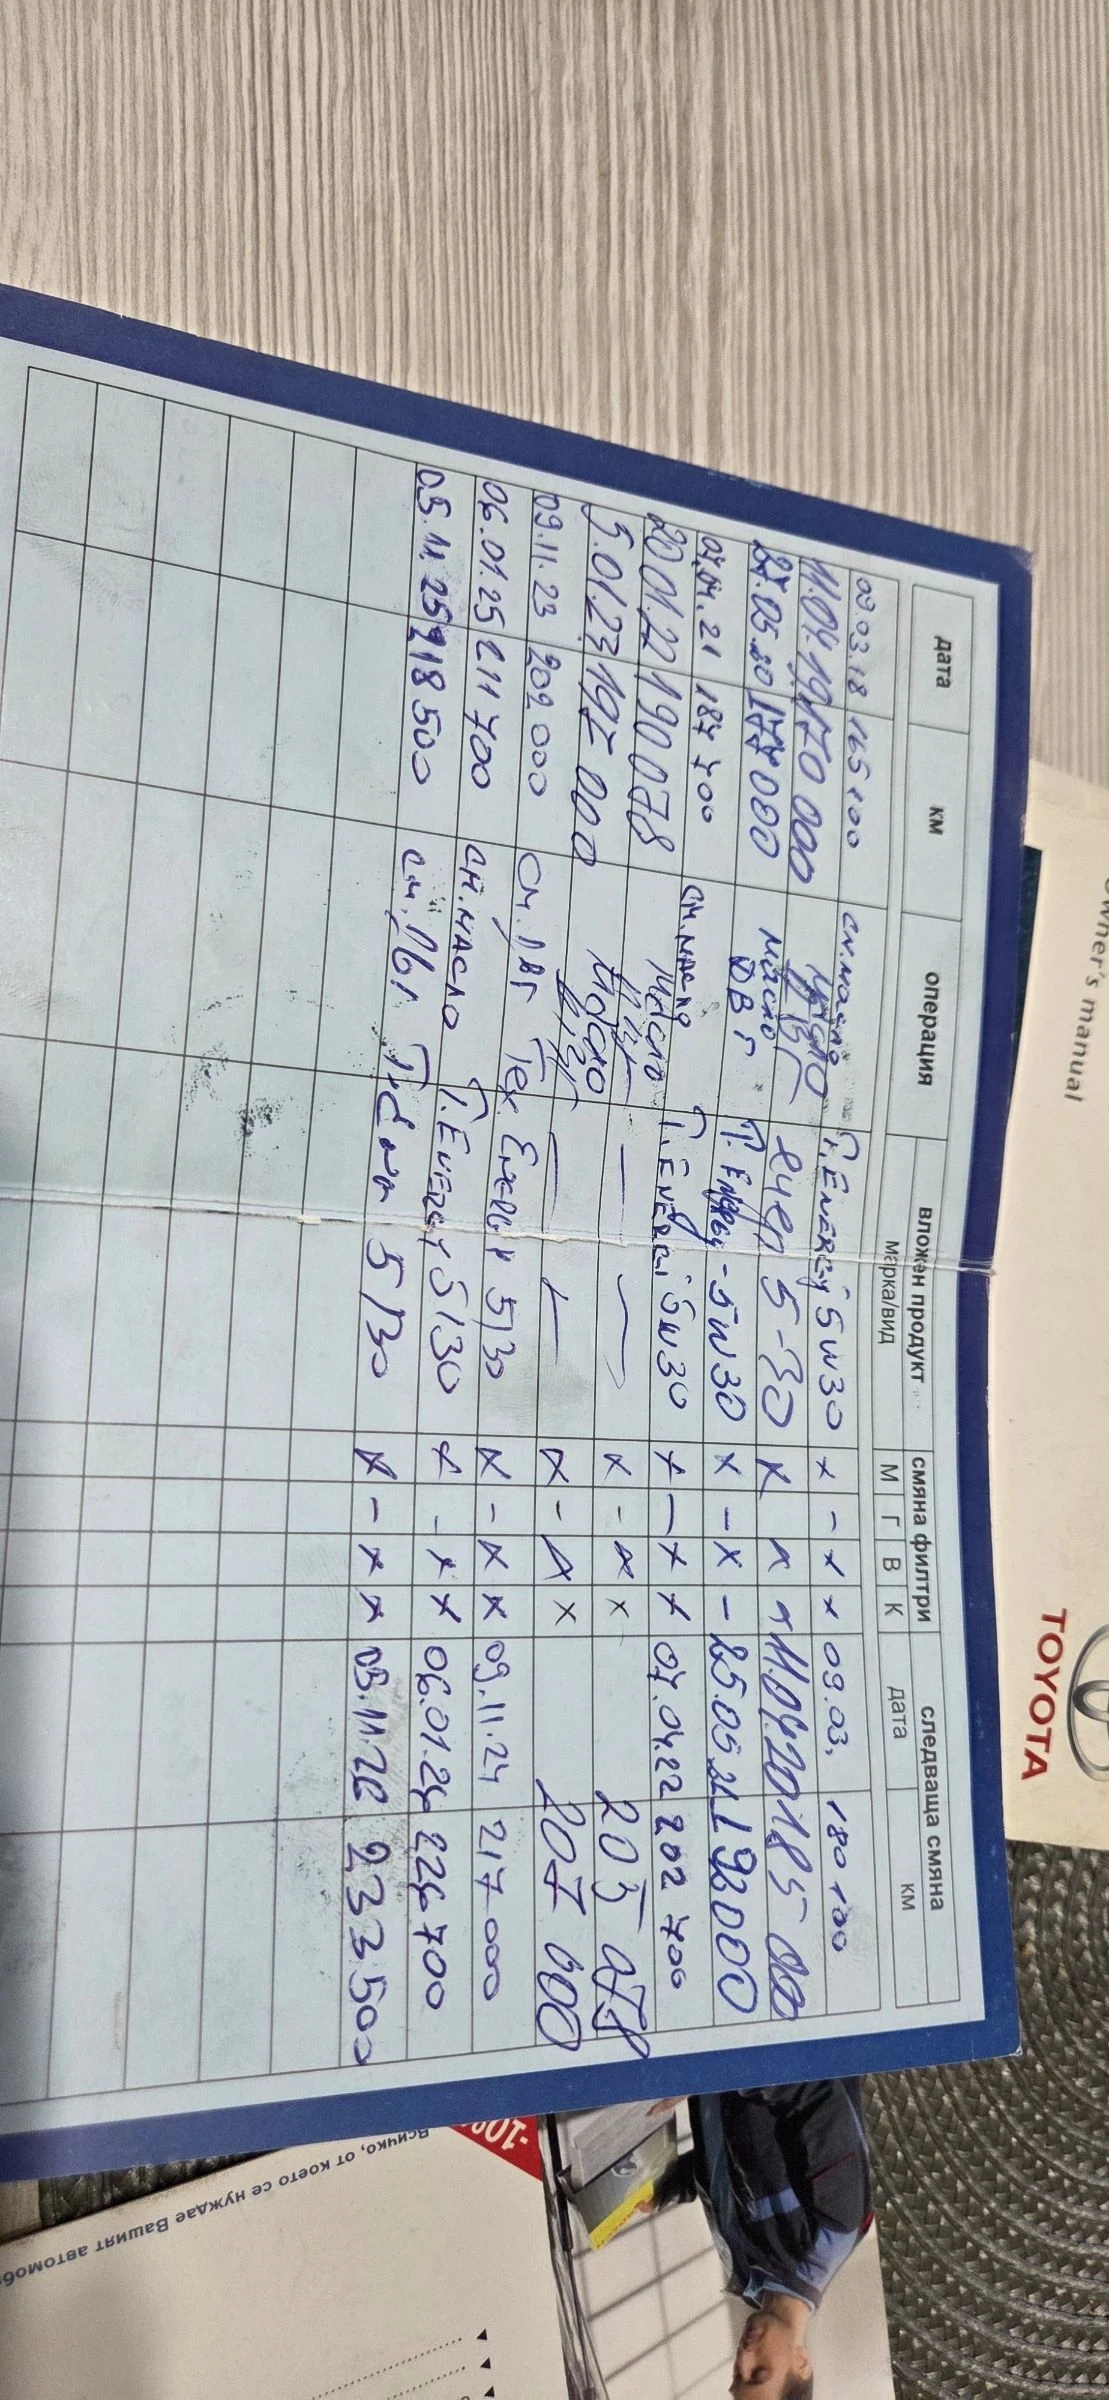 Owner's manual
TOYOTA
дата км операция вложен продукт смяна филтри следваща смяна
марка/вид М Г В К дата км
09.03.18 165 100 см.масло T.ENERGY 5W30 x - x x 09.03. 180 100
11.04.19 170 000 масло ДВГ 5-30 x x x 11.04.20 185 000
05.20 177 000 масло ДВГ T. Energy - 5W30 x - x - 25.05.21 192000
07.04.21 187 700 см.масло T.ENERGY 5W30 x - x x 07.04.22 202 700
20.01.22 190 078 масло — — x - x x 205 078
5.01.23 192 000 масло — — x - x x 207 000
09.11.23 202 000 см. ДВГ Tex ENERGY 5/30 x - x x 09.11.24 217 000
06.01.25 211 700 см.масло T.ENERGY 5/30 x - x x 06.01.26 226 700
03.11.25 218 500 см. 5/30 x - x x 03.11.26 233 500
-10%
Всичко, от което се нуждае Вашият автомоби